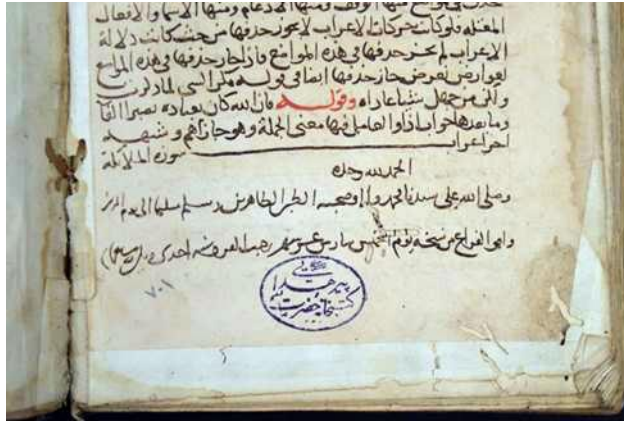 حذف في مواضع منها الوقف ومنها الادغام ومنها الاسما والافعال
المعتله فلو كانت حركات الاعراب لا يجوز حذفها من حيث كانت دلالة
الاعراب لم يجز حذفها في هذه المواضع فاذا جاز حذفها في هذه المواضع
لعوارض تعرض جاز حذفها ايضا في قوله مكر السى لما ذكرت
وقوله فان الله كان بعباده بصيرا الفا
وما بعدها جواب اذا والعامل فيها معنى الجملة وهو جازاهم وشبهه
اخر اعراب سورة الملائكة
الحمد لله وحده
وصلى الله على سيدنا محمد واله وصحبه الطيبين الطاهرين وسلم تسليما الى يوم الدين
الفراغ من نسخه يوم الخميس سادس عشر شهر رجب الفرد سنه احدى
٧٠١
كتبخانه